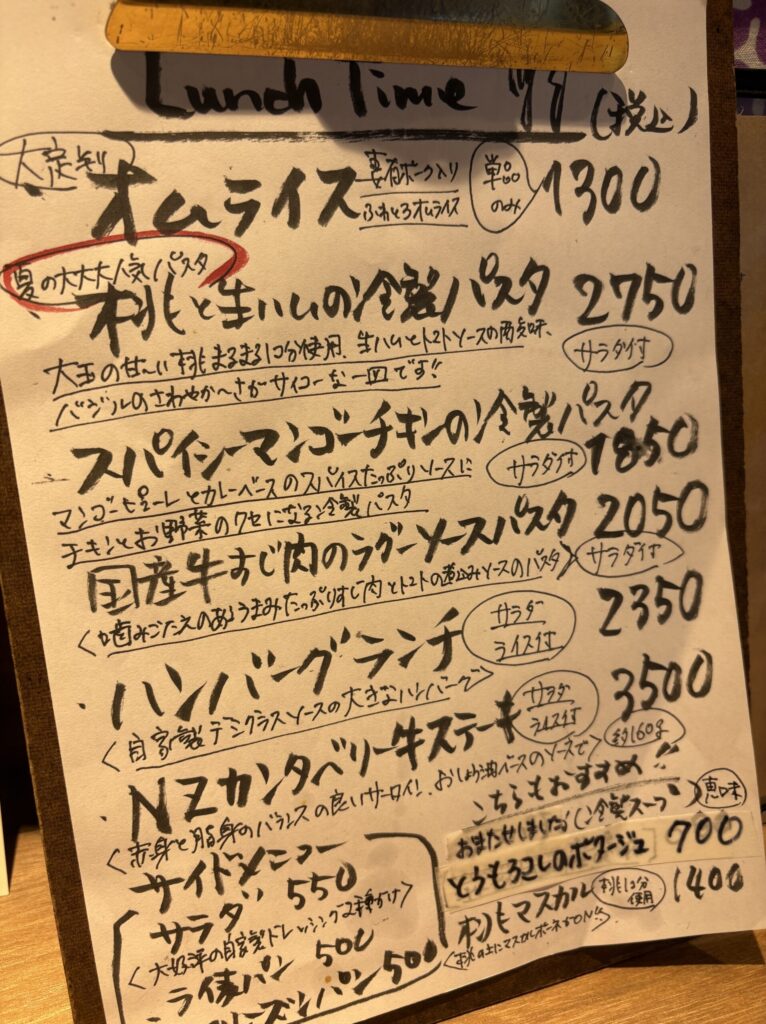 Lunch Time
(税込)
大定番
オムライス 妻有ポーク入り ふわとろオムライス 単品のみ 1300
夏の大大大人気パスタ
桃と生ハムの冷製パスタ 2750
サラダ付
大玉の甘〜い桃まるまる1コ分使用、生ハムとトマトソースの
バジルのさわやか〜さがサイコーな一皿です!!
スパイシーマンゴーチキンの冷製パスタ
サラダ付 1850
マンゴーピューレとカレーベースのスパイスたっぷりソースに
チキンとお野菜のクセになる冷製パスタ
国産牛すじ肉のラグーソースパスタ 2050
サラダ付
<噛みごたえのあるうまみたっぷりすじ肉とトマトの煮込みソースのパスタ>
ハンバーグランチ サラダ ライス付 2350
<自家製デミグラスソースの大きなハンバーグ>
NZカンタベリー牛ステーキ サラダ ライス付 3500
約160g
<赤身と脂身のバランスの良いサーロイン!おしょう油ベースのソースで>
サイドメニュー
サラダ 550
<大好評の自家製ドレッシング2種かけ>
ライ麦パン 500
レーズンパン 500
こちらもおすすめ!!
おまたせしました!(冷製スープ) 恵味
とうもろこしのポタージュ 700
桃マスカル 桃1コ分使用 1400
<桃の上にマスカルポーネがON!!>